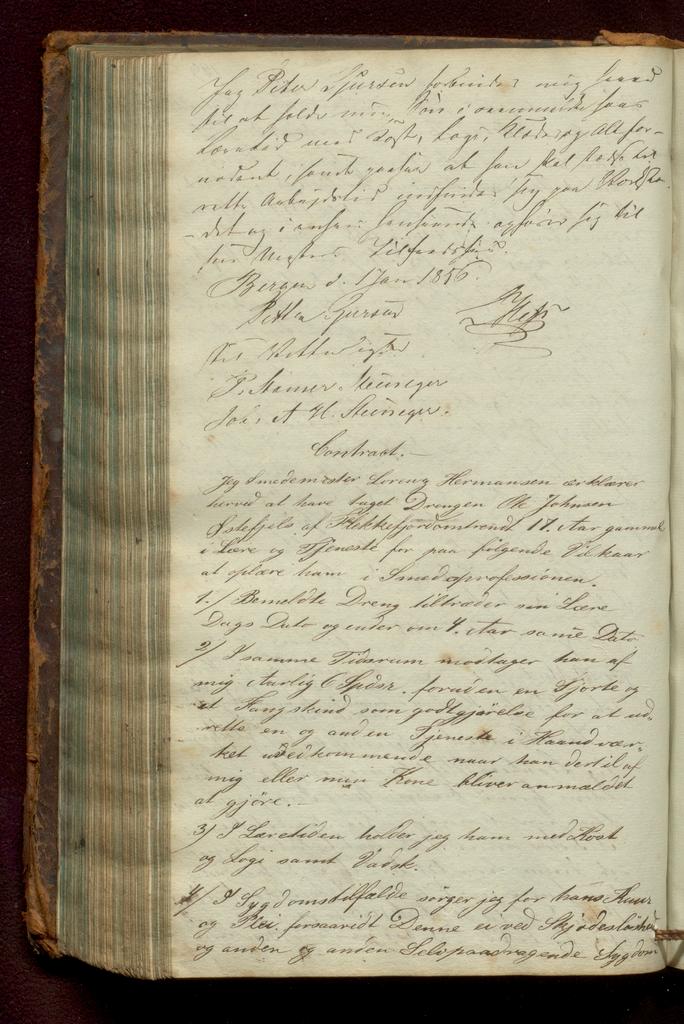 Jeg Peter Sjursen forbinder mig herved
til at holde min Søn i ovennævnte hans
Læretid med Kost, Logi, Klæder og Alt for-
nødent, samt paasee at han skal stedse til
rette Arbeidstid indfinde sig paa Værkste-
det og i enhver henseende opføre sig til
sin Mesters Tilfredshed.
Bergen d. 1 Jan 1856.
Petter Sjursen
Til Vitterlighed
Contract.—
Jeg Smedemester Lorenz Hermansen erklærer
herved at have taget Drengen Ole Johnsen
Østefjels af Flekkefjord omtrendt 17. Aar gammel
i Lære og Tjeneste for paa følgende Vilkaar
at oplære ham i Smedeprofessionen.
1./ Bemeldte Dreng tiltræder sin Lære
Dags Dato og ender om 4. Aar samme Dato
2) I samme Tidsrum modtager han af
mig Aarlig 6 Spdsr. foruden en Sjorte og
et Fangskind som godtgjørelse for at ud-
rette en og anden Tjeneste i Haandvær-
ket uvedkommende naar han dertil af
mig eller min Kone bliver anmældet
at gjöre.—
3) I Læretiden holder jeg ham med Kost
og Logi samt Vadsk.
4/ I Sygdomstilfælde sørger jeg for hans Kuur
og Plei, forsaavidt Denne ei ved Skjødesløshed
og anden og anden Selvpaadragende Sygdom